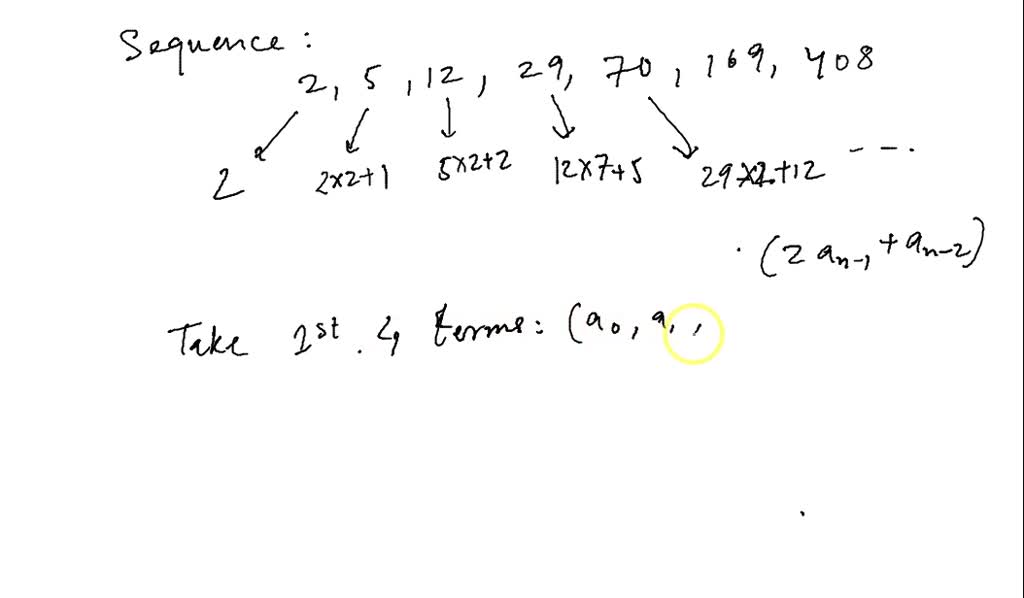 Sequence:
2, 5, 12, 29, 70, 169, 408
2 2x2+1 5x2+2 12x7+5 29x2+12 ---.
(2 aₙ₋₁ + aₙ₋₂)
Take 1st. 4 terms: (a₀, a₁,